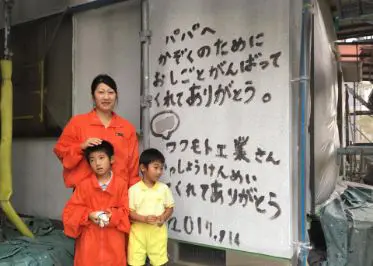 パパへ
かぞくのために
おしごとがんばって
くれてありがとう。
ワクモト工業さん
っしょうけんめい
くれてありがとう
2017.9/4